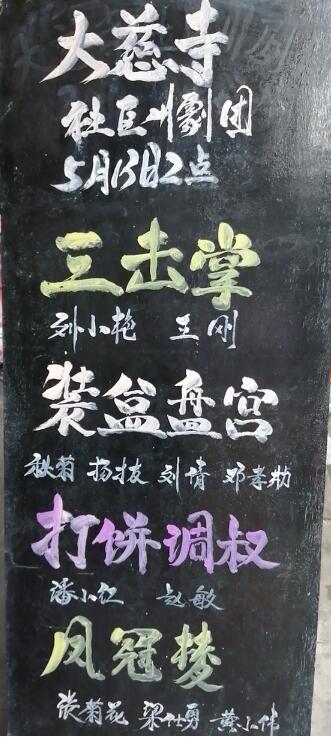 大慈寺
社区川剧团
5月13日2点
三击掌
刘小艳 王刚
装盆盘宫
秋菊 杨拔 刘倩 邓孝勋
打饼调叔
潘小红 赵敏
凤冠梦
张菊花 梁仕勇 黄小伟